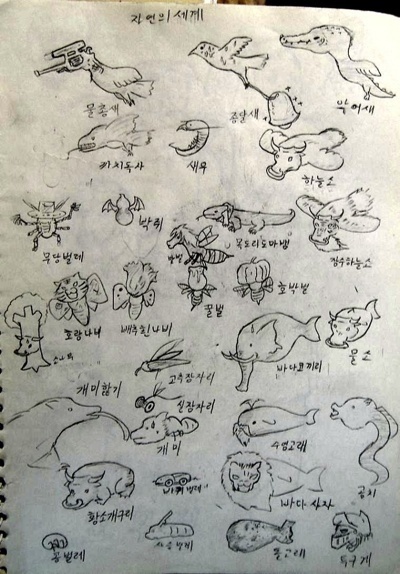 자연의 세계
물총새
종달새
악어새
까치독사
새우
하늘소
무당벌레
박쥐
목도리도마뱀
말벌
장수하늘소
꿀벌
호박벌
호랑나비
배추흰나비
소나무
물소
고추잠자리
바다코끼리
개미핥기
실잠자리
개미
수염고래
바퀴벌레
바다사자
곰치
황소개구리
콩벌레
돌고래
투구게